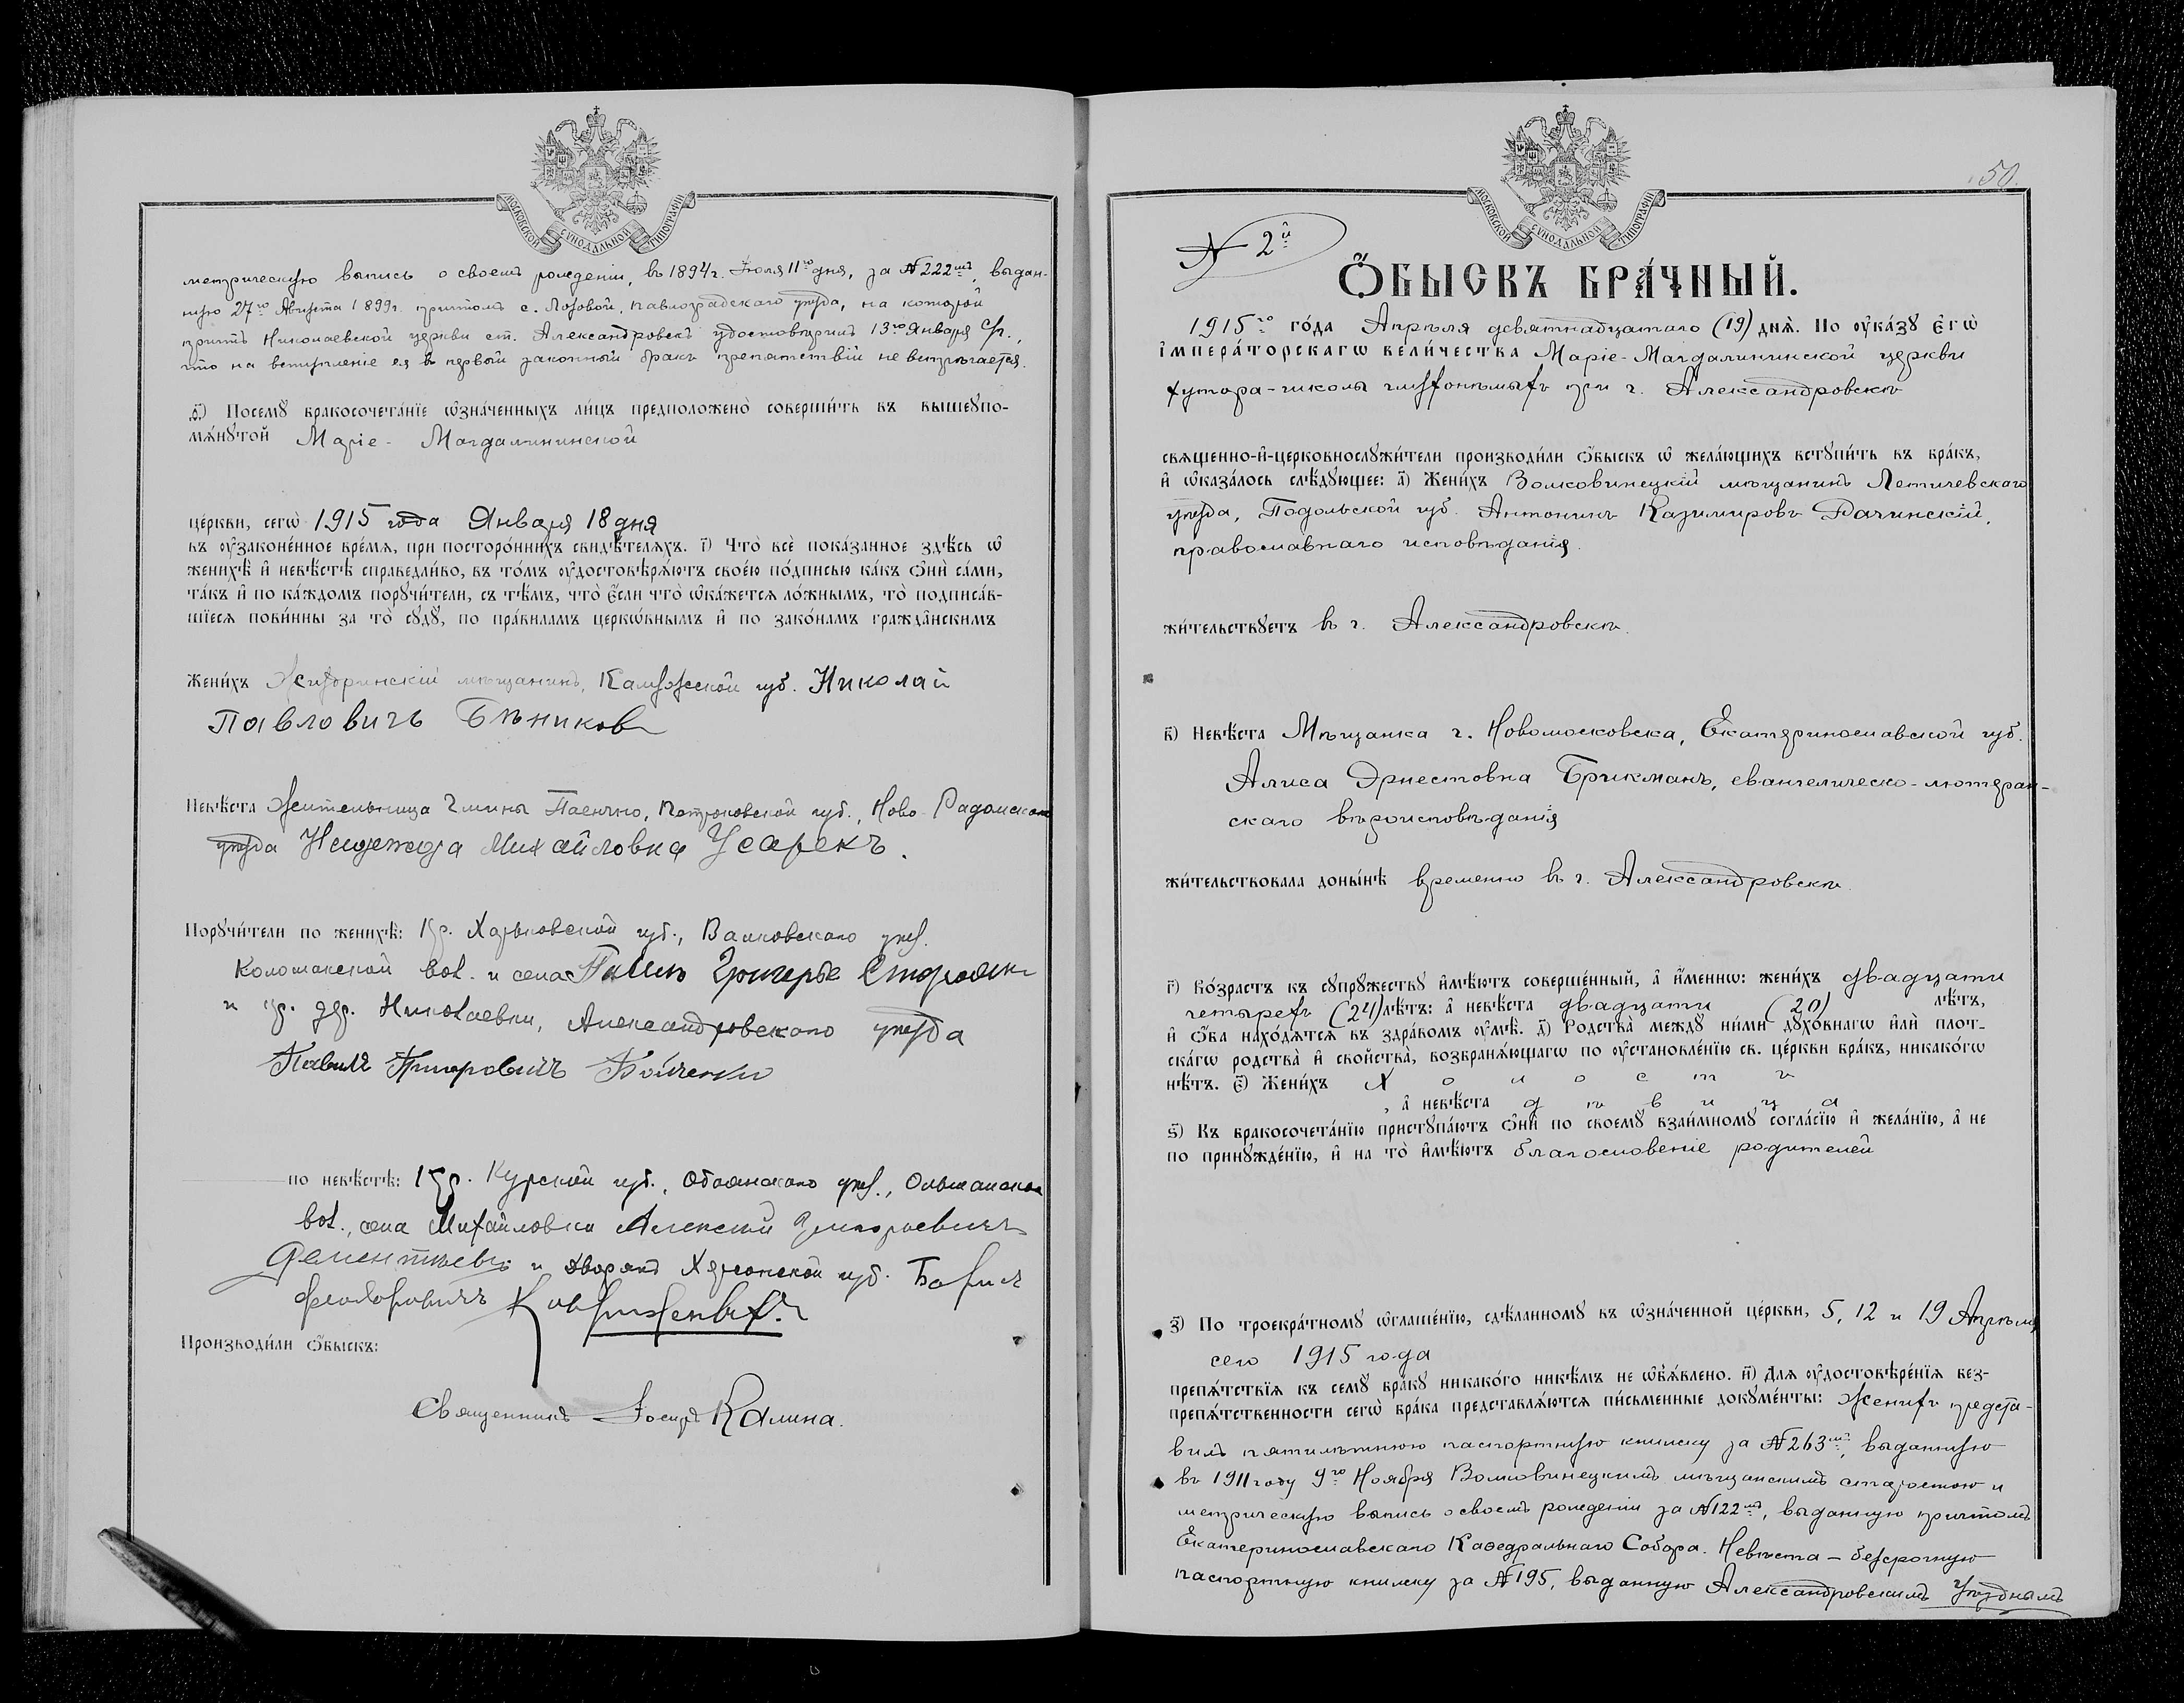 МОСКОВСКОЙ СѴНОДАЛЬНОЙ ТИПОГРАФІИ
метрическую выпись о своемъ рожденіи, въ 1894 г. Іюля 11го дня, за № 222мъ, выдан-
ную 27го Августа 1899 г. причтомъ с. Лозовой, Павлоградскаго уѣзда, на которой
причтъ Николаевской церкви ст. Александровскъ удостовѣрилъ 13го Января с/г.,
что на вступленіе ея въ первый законный бракъ препятствій не встрѣчается.
ѳ҃) Посемꙋ бракосочета́нїе ѡ҆зна́ченныхъ ли́цъ предположено̀ соверши́ть въ вышеꙋпо-
мѧ́нꙋтой Маріе-Магдалининской
це́ркви, сегѡ̀ 1915 года Января 18 дня
въ ᲂу҆законе́нное вре́мѧ, при посторо́ннихъ свидѣ́телѧхъ. і҃) Что̀ всѐ пока́занное здѣ́сь ѡ҆
женихѣ̀ и҆ невѣ́стѣ справедли́во, въ то́мъ ᲂу҆достовѣрѧ́ютъ свое́ю по́дписью ка́къ ѻ҆нѝ са́ми,
та́къ и҆ по ка́ждомъ порꙋчи́тели, съ тѣ́мъ, что̀ є҆́сли что̀ ѡ҆ка́жетсѧ ло́жнымъ, то̀ подписа́в-
шїесѧ пови́нны за то̀ сꙋдꙋ̀, по пра́виламъ церкѡ́внымъ и҆ по зако́намъ гражда̂нскимъ
Жени́хъ Жиздринскій мѣщанинъ, Калужской губ. Николай
Павловичъ Бѣликовъ
Невѣ́ста Жительница Гмины Паенчно, Петроковской губ., Ново-Радомскаго
уѣзда Надежда Михайловна Усарекъ.
Порꙋчи́тели по женихѣ̀: Кр. Харьковской губ., Валковскаго уѣз.
Коломакской вол. и села
и кр. дер. Николаевки, Александровскаго уѣзда
Павелъ
по невѣ́стѣ: Кр. Курской губ., Обоянскаго уѣз., Ольшанской
вол., села Михайловки Алексей Григорьевичъ
Дементьевъ и дворян. Херсонской губ. Борисъ
Феодоровичъ
Производи́ли ѻ҆́быскъ:
Священникъ Іосифъ Калина.
50.
МОСКОВСКОЙ СѴНОДАЛЬНОЙ ТИПОГРАФІИ
№ 2й
Ѻ҆́БЫСКЪ БРА́ЧНЫЙ.
1915го го́да Апрѣля девятнадцатаго (19) днѧ̀. По ᲂу҆ка́зꙋ Є҆гѡ̀
І҆мпера́торскагѡ вели́чества Маріе-Магдалининской церкви
хутора-школы глухонѣмыхъ при г. Александровскѣ
свѧщенно-и҆-церковнослꙋжи́тели производи́ли ѻ҆́быскъ ѡ҆ жела́ющихъ встꙋпи́ть въ бра́къ,
и҆ ѡ҆каза́лось слѣ́дꙋющее: а҃) Жени́хъ Волковинецкій мѣщанинъ Летичевскаго
уѣзда, Подольской губ. Антонинъ Казимировъ Рачинскій,
православнаго исповѣданія.
жи́тельствꙋетъ въ г. Александровскѣ.
в҃) Невѣ́ста Мѣщанка г. Новомосковска, Екатеринославской губ.
Алиса Эрнестовна Брикманъ, евангелическо-лютеран-
скаго вѣроисповѣданія
жи́тельствовала доны́нѣ временно въ г. Александровскѣ.
г҃) Во́зрастъ къ сꙋпрꙋ́жествꙋ и҆мѣ́ютъ соверше́нный, а҆ и҆́меннѡ: жени́хъ двадцати
четырехъ (24) лѣ́тъ: а҆ невѣ́ста двадцати (20) лѣ́тъ,
и҆ ѻ҆́ба нахо́дѧтсѧ въ здра́вомъ ᲂу҆мѣ̀. д҃) Родства̀ междꙋ̀ ни́ми дꙋхо́внагѡ и҆лѝ плот-
ска́гѡ родства̀ и҆ сво́йства̀, возбранѧ́ющагѡ по ᲂу҆становле́нїю св. це́ркви бра́къ, никако́гѡ
нѣ́тъ. є҃) Жени́хъ холостъ
, а҆ невѣ́ста дѣвица
ѕ҃) Къ бракосочета́нїю пристꙋпа́ютъ ѻ҆нѝ по своемꙋ̀ взаи́мномꙋ согла́сїю и҆ жела́нїю, а҆ не
по принꙋжде́нїю, и҆ на то̀ и҆мѣ́ютъ благословеніе родителей
з҃) По троекра́тномꙋ ѡ҆глаше́нїю, сдѣ́ланномꙋ въ ѡ҆зна́ченной це́ркви, 5, 12 и 19 Апрѣля
сего 1915 года
препѧ́тствїѧ къ семꙋ̀ бра́кꙋ никако́го никѣ́мъ не ѡ҆б̾ѧ́влено. и҃) Длѧ ᲂу҆достовѣре́нїѧ без-
препѧ́тственности сегѡ̀ бра́ка представлѧ́ютсѧ пи́сьменные докꙋме́нты: Женихъ предста-
вилъ пятилѣтнюю паспортную книжку за № 263мъ, выданную
въ 1911 году 9го Ноября Волковинецкимъ мѣщанскимъ старостою и
метрическую выпись о своемъ рожденіи за № 122мъ, выданную причтомъ
Екатеринославскаго Каѳедральнаго Собора. Невѣста – безсрочную
паспортную книжку за № 195, выданную Александровскимъ Уѣзднымъ